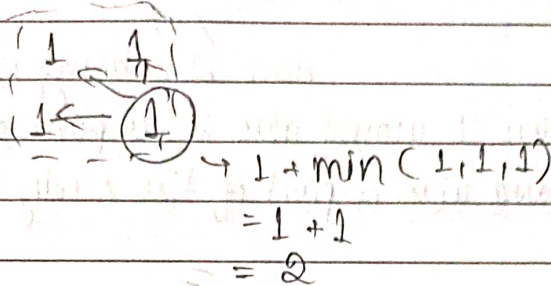 1 1
1 ← 1
→ 1 + min (1, 1, 1)
= 1 + 1
= 2